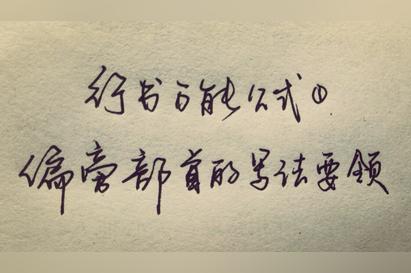 行书万能公式①
偏旁部首的写法要领